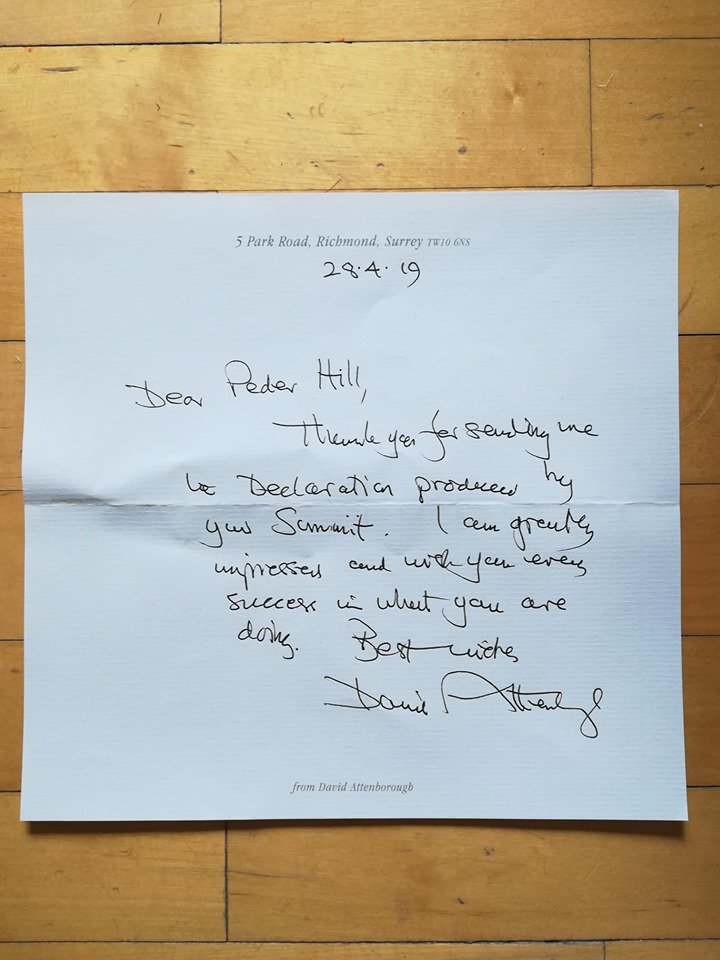 5 Park Road, Richmond, Surrey TW10 6NS
28.4.19
Dear Peder Hill,
Thank you for sending me
the Declaration produced by
your Summit. I am greatly
impressed and wish you every
success in what you are
doing. Best wishes
David Attenborough
from David Attenborough